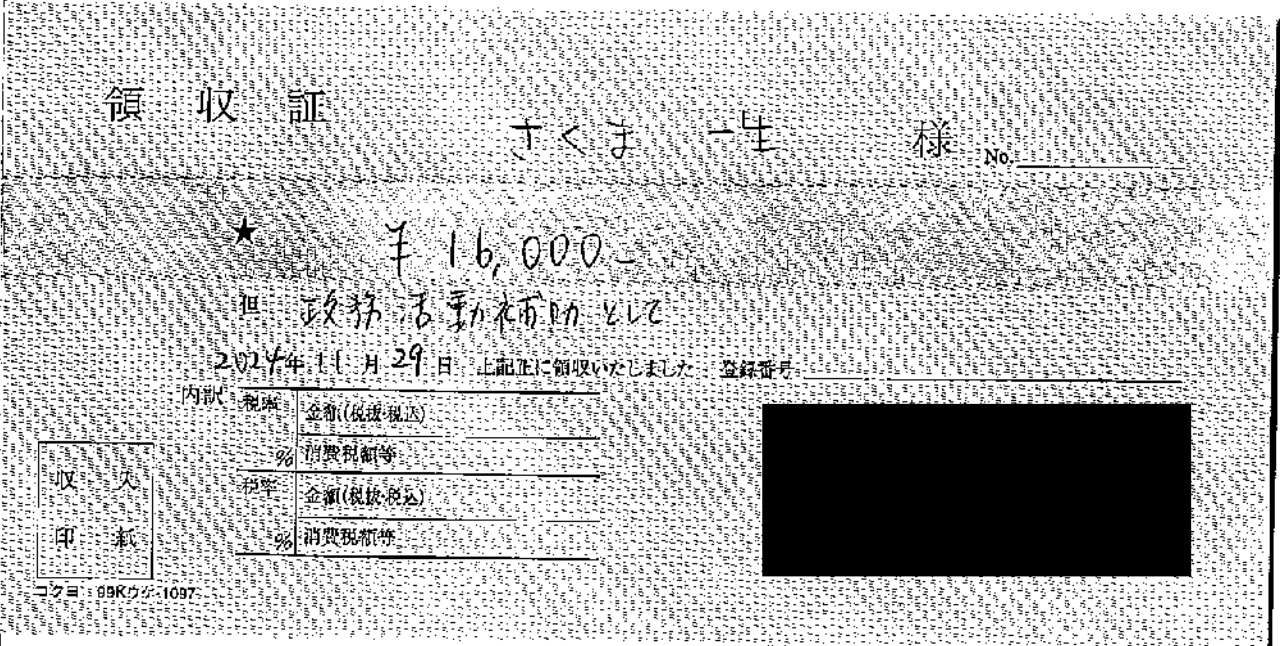 領収証
さくま 一生 様 No.
★ ¥16,000-
但 政務活動補助として
2024年 11月 29日 上記正に領収いたしました 登録番号
内訳 税率 金額(税抜・税込)
% 消費税額等
税率 金額(税抜・税込)
% 消費税額等
収入
印紙
コクヨ ウケ-1097